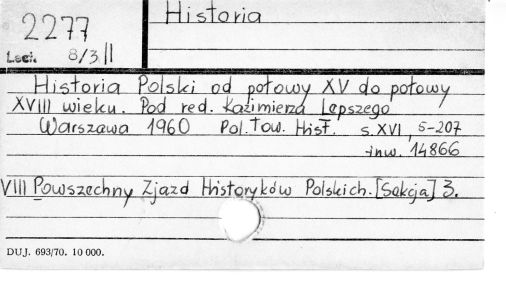 2277
Lect. 8/3 II
Historia
Historia Polski od połowy XV do połowy
XVIII wieku. Pod red. Kazimierza Lepszego
Warszawa 1960 Pol. Tow. Hist. s. XVI, 5-207
inw. 14866
VIII Powszechny Zjazd Historyków Polskich. [Sekcja] 3.
DUJ. 693/70. 10 000.